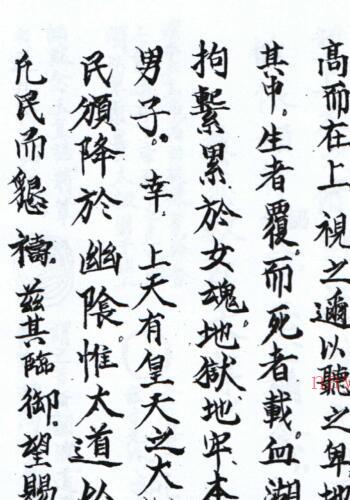 高而在上視之邇以聽之卑地
其中。生者覆。而死者載。血湖
拘繫累於女魂。地獄地牢。本
男子。幸　上天有皇天之大
民頒降於　幽陰。惟太道以
凡民而懇禱。茲其臨御。望賜